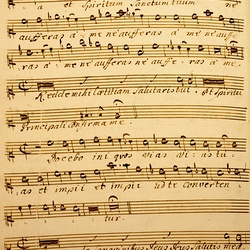 a et Spiritum Sanctum tuum ne
aufferas a me ne aufferas a me ne auffe
ras a me ne aufferas ne auffe ras a me.
Redde mihi lætitiam Salutaris tui et Spiritu
Principali confirma me.
Docebo ini quos vias vias tu
as et impii et impii ad te converten
tur.
sanguinibus Deus Deus Salutis meæ